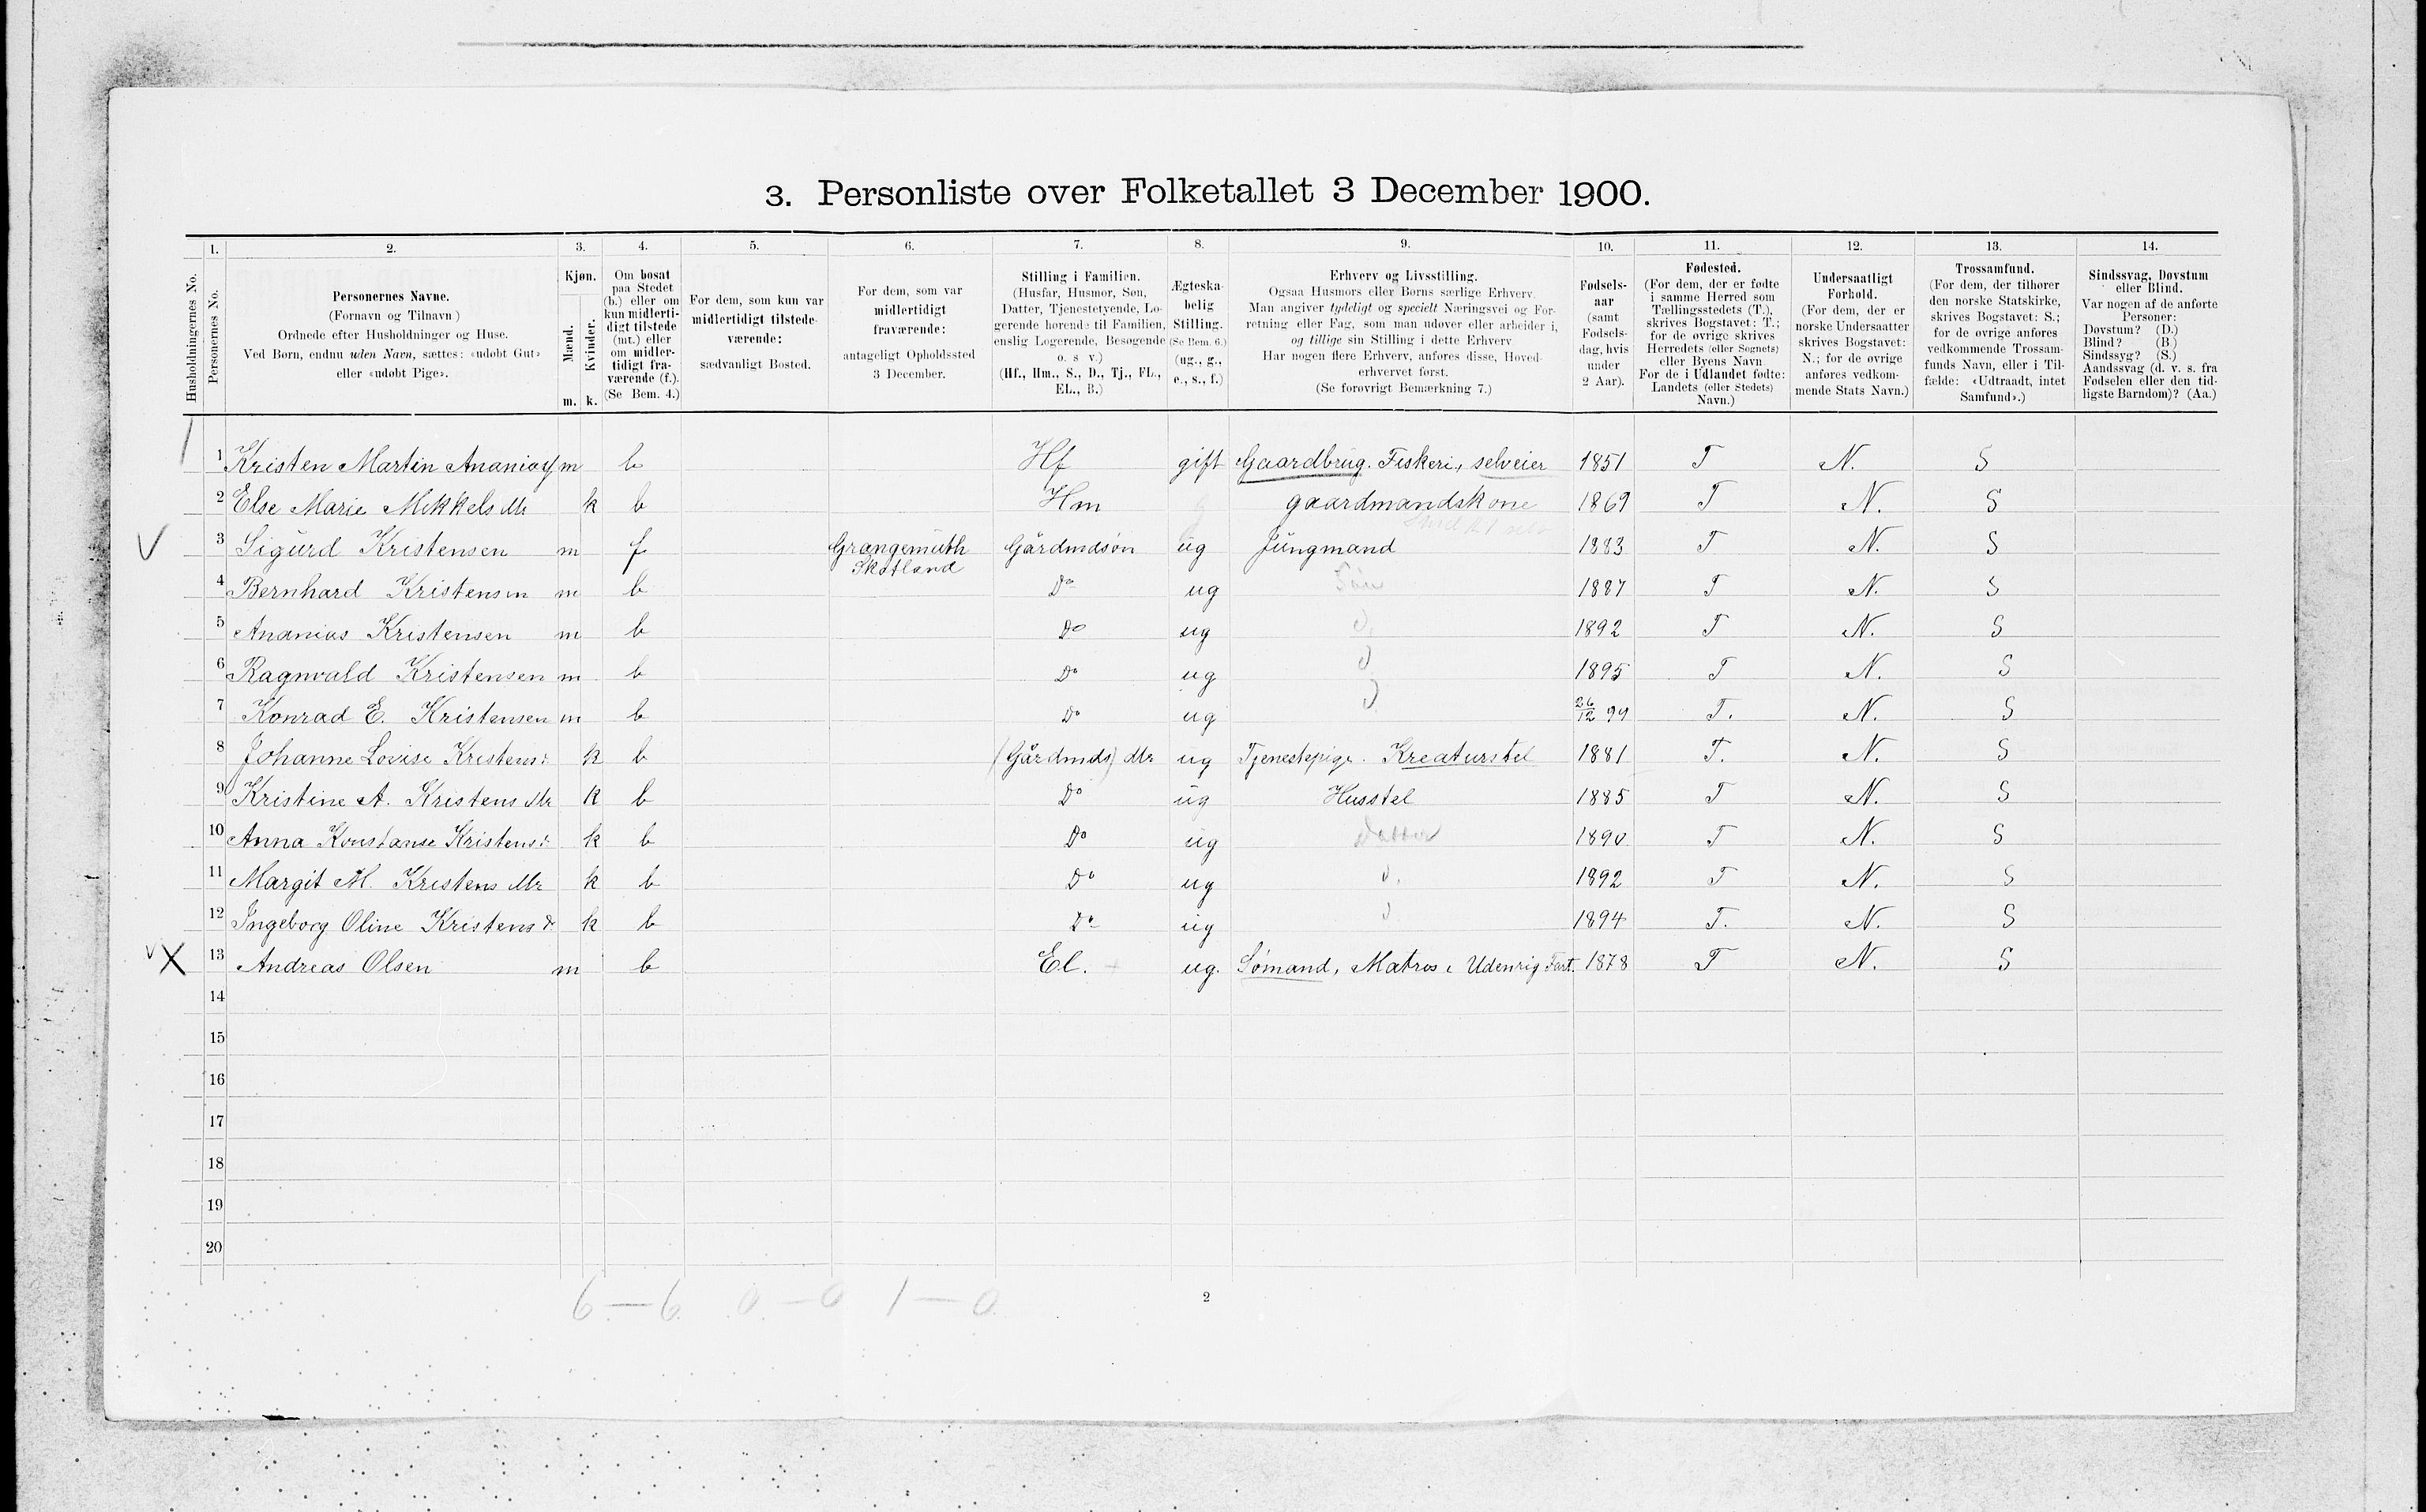 3. Personliste over Folketallet 3 December 1900.
1. 2. 3. 4. 5. 6. 7. 8. 9. 10. 11. 12. 13. 14.
Husholdningernes No.
Personernes No.
Personernes Navne.
(Fornavn og Tilnavn)
Ordnede efter Husholdninger og Huse.
Ved Børn, endnu uden Navn, sættes: «udøbt Gut»
eller «udøbt Pige».
Kjøn.
Mænd.
Kvinder.
m. k.
Om bosat
paa Stedet
(b.) eller om
kun midlerti-
digt tilstede
(mt.) eller
om midler-
tidigt fra-
værende (f.).
(Se Bem. 4.)
For dem, som kun var
midlertidigt tilstede-
værende:
sædvanligt Bosted.
For dem, som var
midlertidigt
fraværende:
antageligt Opholdssted
3 December.
Stilling i Familien.
(Husfar, Husmor, Søn,
Datter, Tjenestetyende, Lo-
gerende hørende til Familien,
enslig Logerende, Besøgende
o. s v.)
(Hf., Hm., S., D., Tj., FL.,
EL., B.)
Ægteska-
belig
Stilling.
(Se Bem. 6.)
(ug., g.,
e., s., f.)
Erhverv og Livsstilling.
Ogsaa Husmors eller Børns særlige Erhverv.
Man angiver tydeligt og specielt Næringsvei og For-
retning eller Fag, som man udøver eller arbeider i,
og tillige sin Stilling i dette Erhverv.
Har nogen flere Erhverv, anføres disse, Hoved-
erhvervet først.
(Se forøvrigt Bemærkning 7.)
Fødsels-
aar
(samt
Fødsels-
dag, hvis
under
2 Aar).
Fødested.
(For dem, der er fødte
i samme Herred som
Tællingsstedets (T.),
skrives Bogstavet: T.;
for de øvrige skrives
Herredets (eller Sognets)
eller Byens Navn
For de i Udlandet fødte:
Landets (eller Stedets)
Navn.)
Undersaatligt
Forhold.
(For dem, der er
norske Undersaatter
skrives Bogstavet:
N.; for de øvrige
anføres vedkom-
mende Stats Navn.)
Trossamfund.
(For dem, der tilhører
den norske Statskirke,
skrives Bogstavet: S.;
for de øvrige anføres
vedkommende Trossam-
funds Navn, eller i Til-
fælde: «Udtraadt, intet
Samfund».)
Sindssvag, Døvstum
eller Blind.
Var nogen af de anførte
Personer:
Døvstum? (D.)
Blind? (B.)
Sindssyg? (S.)
Aandssvag (d. v. s. fra
Fødselen eller den tid-
ligste Barndom)? (Aa.)
1 Kristen Martin Ananias m b Hf gift Gaardbrug. Fiskeri, selveier 1851 T N. S
2 Else Marie Mikkels k b Hm gaardmandskone 1869 T N. S
V 3 Sigurd Kristensen m f Grangemuth Skotland Gårdmdsøn ug Jungmand 1883 T N. S
4 Bernhard Kristensen m b Do ug Søn 1887 T N. S
5 Ananias Kristensen m b Do ug 1892 T N. S
6 Ragnvald Kristensen m b Do ug 1895 T N. S
7 Konrad E. Kristensen m b Do ug 26/12 99 T. N. S
8 Johanne Lovise Kristens: k b (Gårdmds) dtr ug Tjenestepige. Kreaturstel 1881 T. N. S
9 Kristine A. Kristens dtr k b Do ug Husstel 1885 T N. S
10 Anna Konstanse Kristens: k b Do ug Datter 1890 T N. S
11 Margit M. Kristens dtr k b Do ug 1892 T N. S
12 Ingeborg Oline Kristens d k b Do ug 1894 T. N. S
X 13 Andreas Olsen m b El. ug. Sømand, Matros i Udenrig Fart. 1878 T N. S
14
15
16
17
18
19
20
6 — 6 0 — 0 1 — 0
2